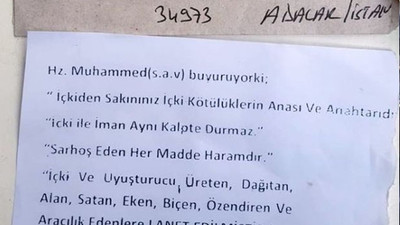 34973 ADALAR/İSTAN
Hz. Muhammed(s.a.v) buyuruyorki;
" İçkiden Sakınınız İçki Kötülüklerin Anası Ve Anahtarıdı
"İcki ile İman Aynı Kalpte Durmaz."
"Sarhoş Eden Her Madde Haramdır."
"İçki Ve Uyuşturucu Üreten, Dağıtan,
Alan, Satan, Eken, Biçen, Özendiren Ve
Aracılık Edenlere LANET